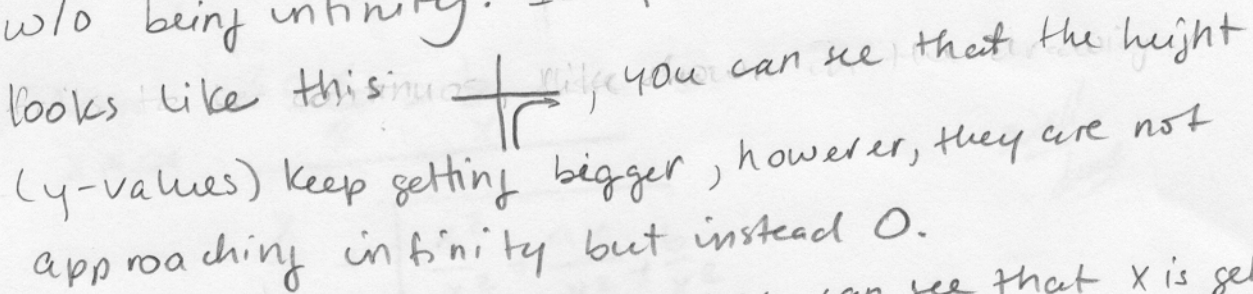 w/o being infinity.
looks like this , you can see that the height
(y-values) keep getting bigger, however, they are not
approaching infinity but instead 0.
can see that x is